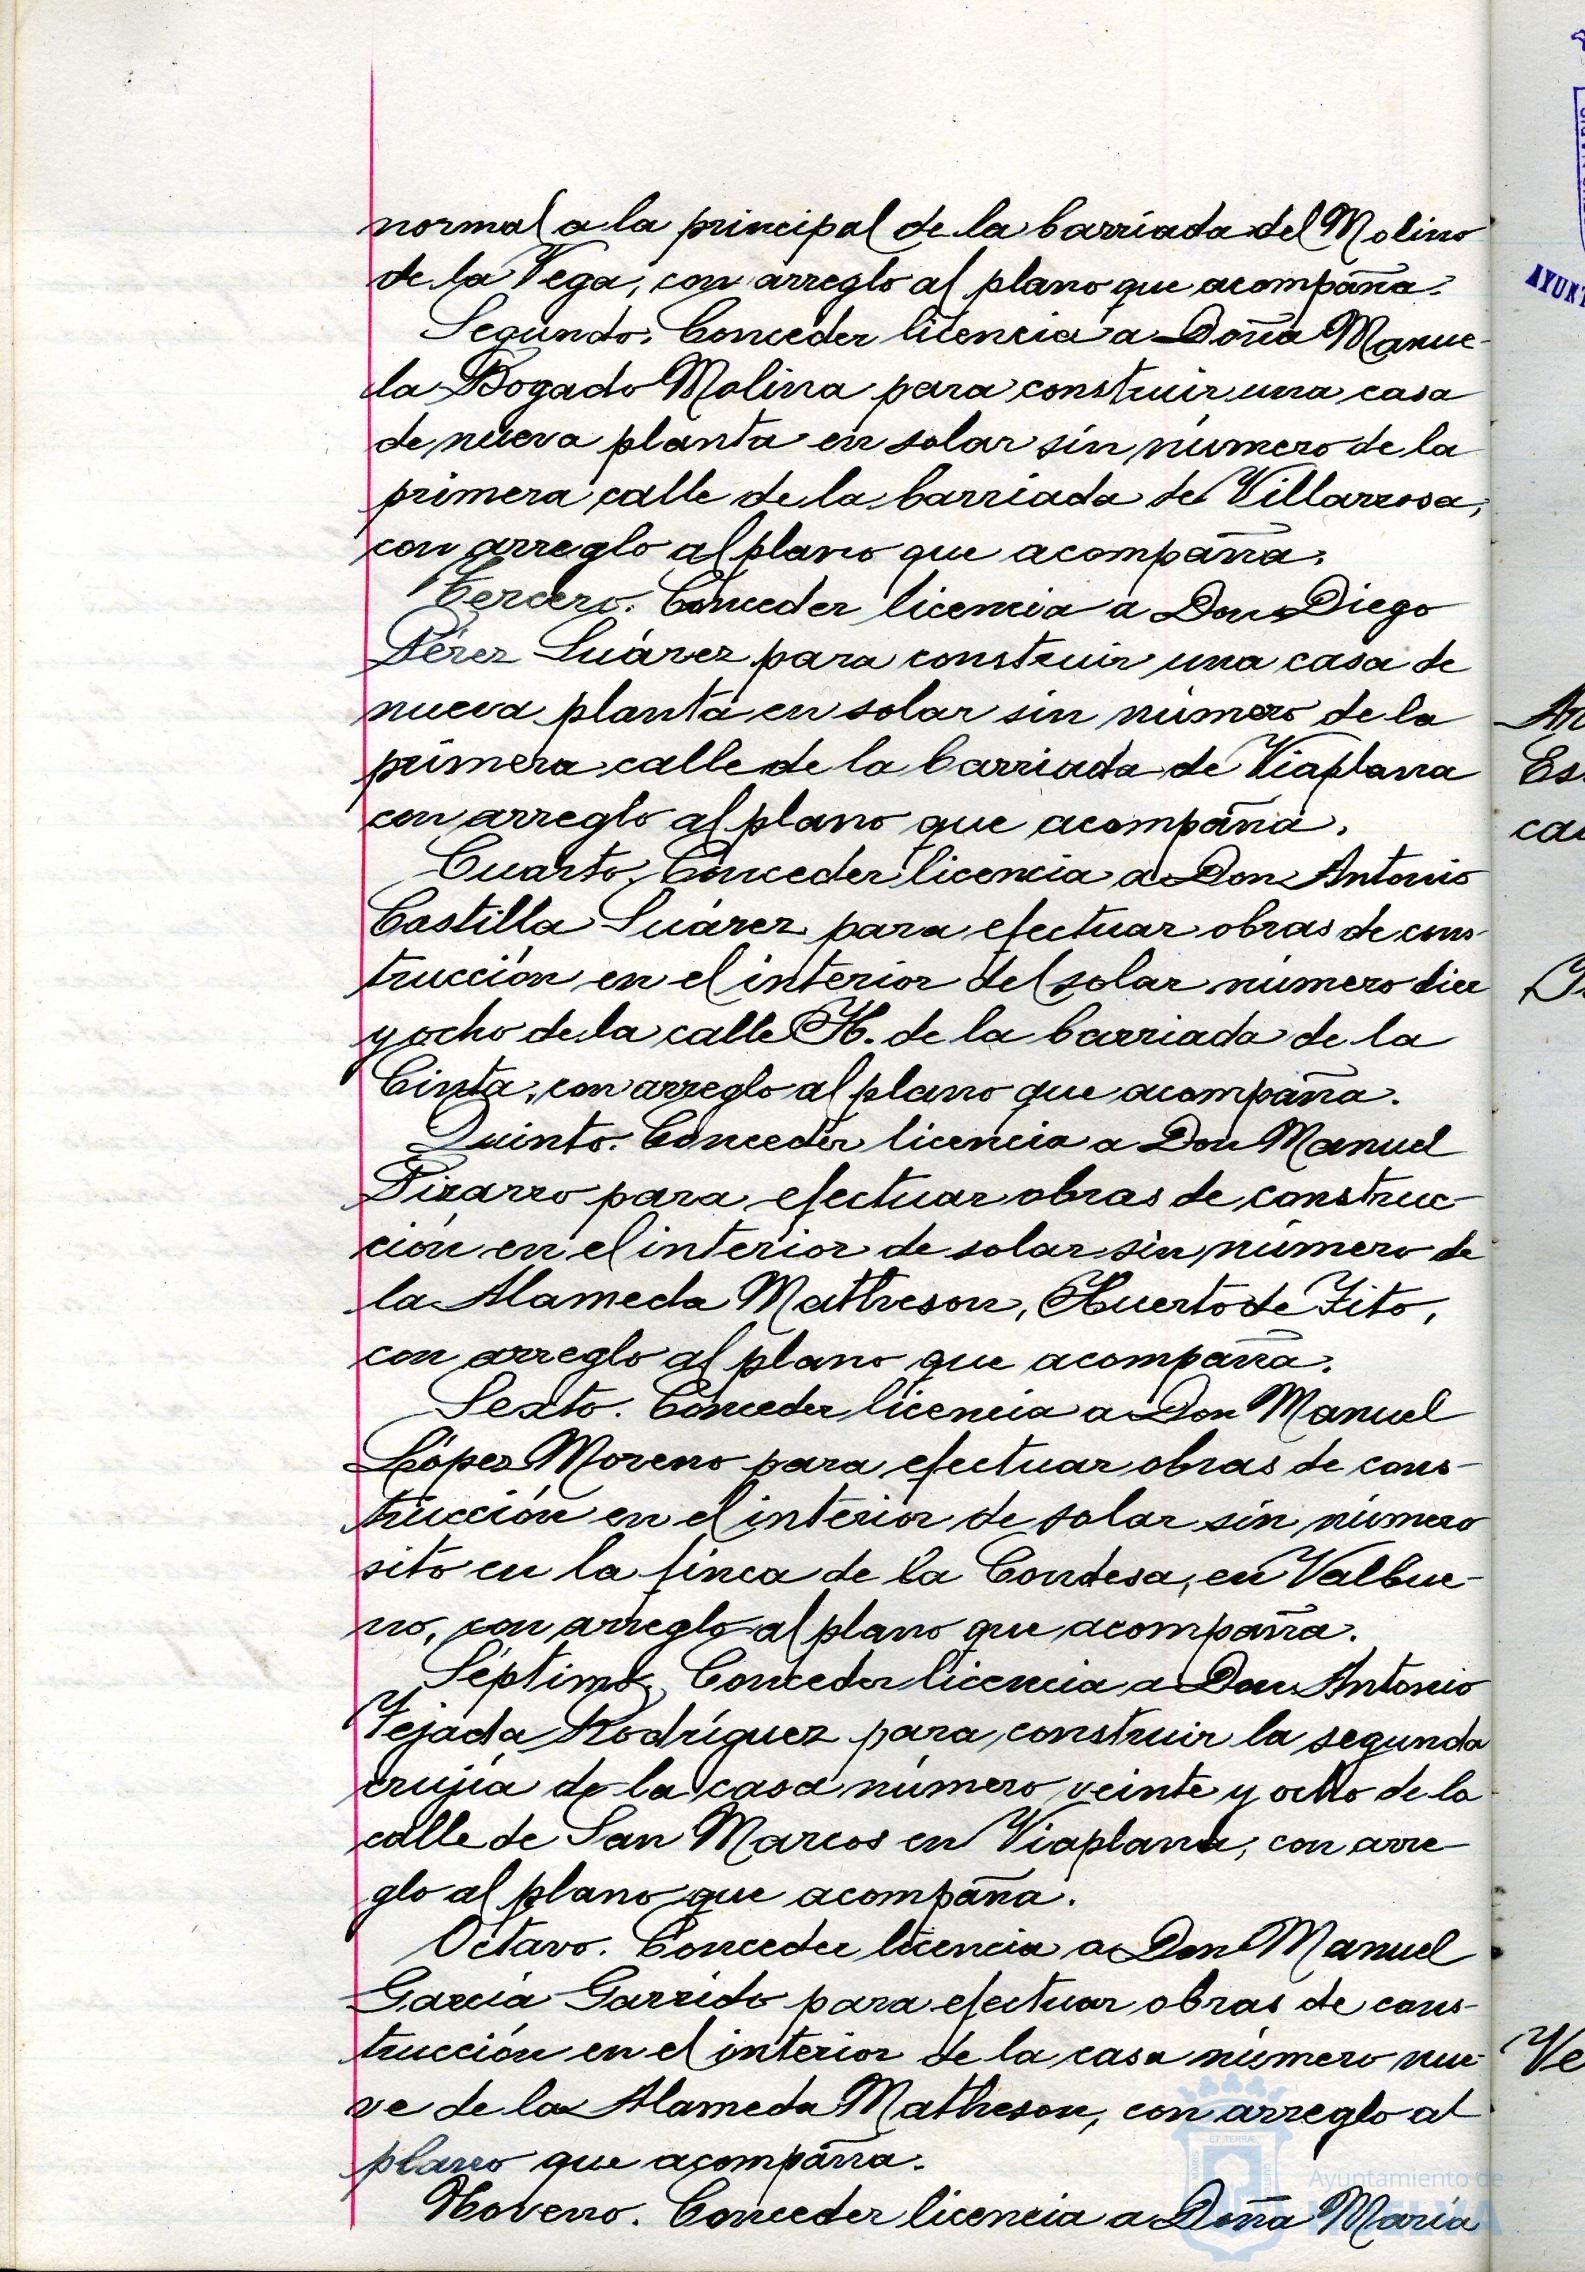 normal a la principal de la barriada del Molino
de la Vega, con arreglo al plano que acompaña.
Segundo. Conceder licencia a Doña Manue-
la Bogado Molina para construir una casa
de nueva planta en solar sin número de la
primera calle de la barriada de Villarrosa,
con arreglo al plano que acompaña.
Tercero. Conceder licencia a Don Diego
Pérez Suárez para construir una casa de
nueva planta en solar sin número de la
primera calle de la barriada de Viaplana
con arreglo al plano que acompaña.
Cuarto. Conceder licencia a Don Antonio
Castilla Suárez para efectuar obras de cons-
trucción en el interior del solar número diez
y ocho de la calle H. de la barriada de la
Cinta, con arreglo al plano que acompaña.
Quinto. Conceder licencia a Don Manuel
Pizarro para efectuar obras de construc-
ción en el interior de solar sin número de
la Alameda Matheson, Huerto de Tito,
con arreglo al plano que acompaña.
Sexto. Conceder licencia a Don Manuel
López Moreno para efectuar obras de cons-
trucción en el interior de solar sin número
sito en la finca de la Condesa, en Valbue-
no, con arreglo al plano que acompaña.
Séptimo. Conceder licencia a Don Antonio
Tejada Rodríguez para construir la segunda
crujía de la casa número veinte y ocho de la
calle de San Marcos en Viaplana, con arre-
glo al plano que acompaña.
Octavo. Conceder licencia a Don Manuel
García Garrido para efectuar obras de cons-
trucción en el interior de la casa número nue-
ve de la Alameda Matheson, con arreglo al
plano que acompaña.
Noveno. Conceder licencia a Doña María
Ayuntamiento de
HUELVA
AYUNT
An
Es
ca
Ve